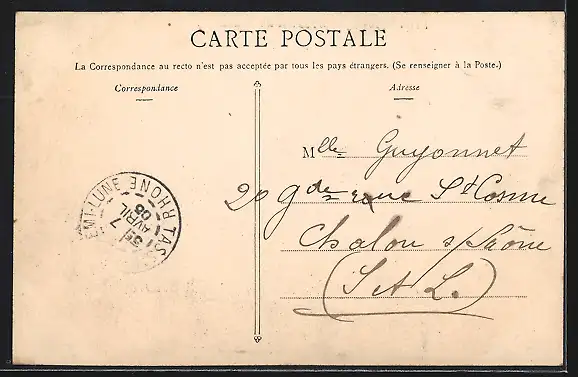 CARTE POSTALE
La Correspondance au recto n'est pas acceptée par tous les pays étrangers. (Se renseigner à la Poste.)
Correspondance
Adresse
Mlle Guyonnet
20 gde rue St Cosme
Chalon s/Saône
(S et L.)
TAS
EMI-LUNE
RHONE
7
AVRIL
08